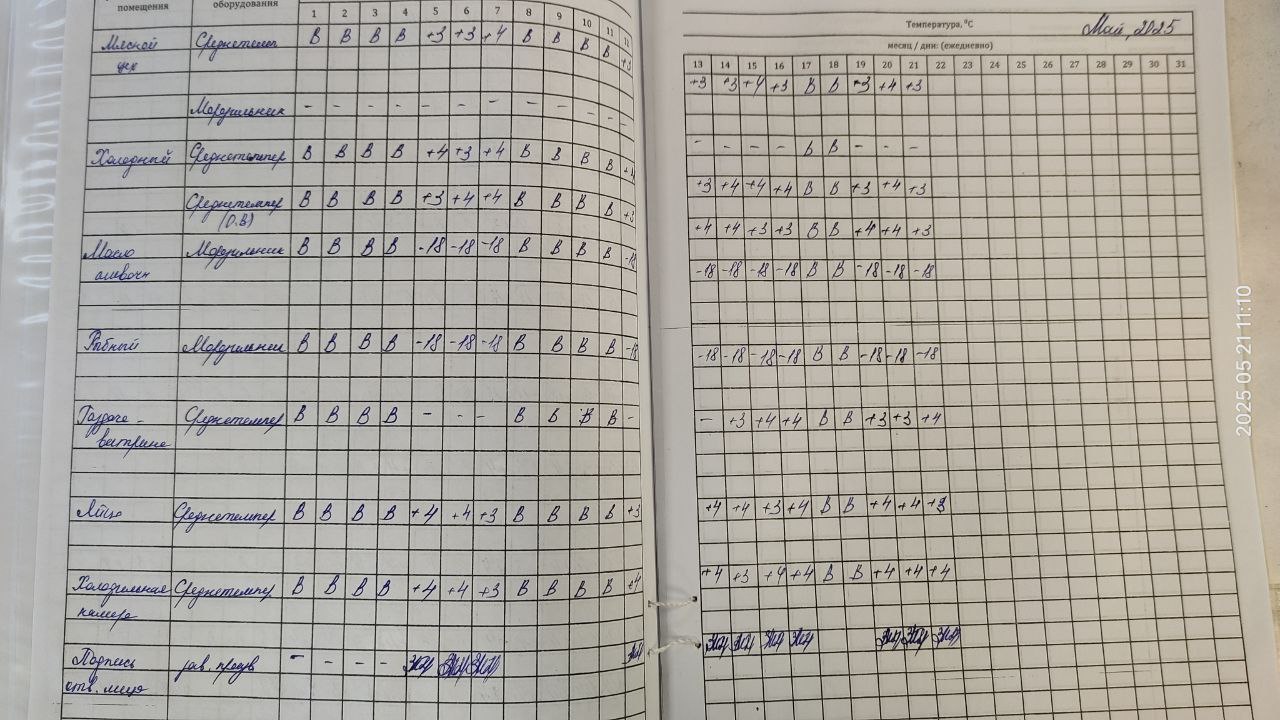 помещения оборудования
1 2 3 4 5 6 7 8 9 10 11 12
Мясной Среднетемп В В В В +3 +3 +4 В В В В +3
цех
Морозильник - - - - - - - - - - - -
Холодный Среднетемпер В В В В +4 +3 +4 В В В В +4
Среднетемпер В В В В +3 +4 +4 В В В В +3
(О.В)
Масло Морозильник В В В В -18 -18 -18 В В В В -18
сливочн
Рыбный Морозильник В В В В -18 -18 -18 В В В В -18
Раздача - Среднетемпер В В В В - - - В В В В -
витрина
Яйцо Среднетемпер В В В В +4 +4 +3 В В В В +3
Холодильная Среднетемпер В В В В +4 +4 +3 В В В В +4
камера
Подпись зав. произв - - - -
отв. лица
Температура, °С
Май, 2025
месяц / дни: (ежедневно)
13 14 15 16 17 18 19 20 21 22 23 24 25 26 27 28 29 30 31
+3 +3 +4 +3 В В +3 +4 +3
- - - - В В - - -
+3 +4 +4 +4 В В +3 +4 +3
+4 +4 +3 +3 В В +4 +4 +3
-18 -18 -18 -18 В В -18 -18 -18
-18 -18 -18 -18 В В -18 -18 -18
- +3 +4 +4 В В +3 +3 +4
+4 +4 +3 +4 В В +4 +4 +3
+4 +3 +4 +4 В В +4 +4 +4
2025 05 21 11:10